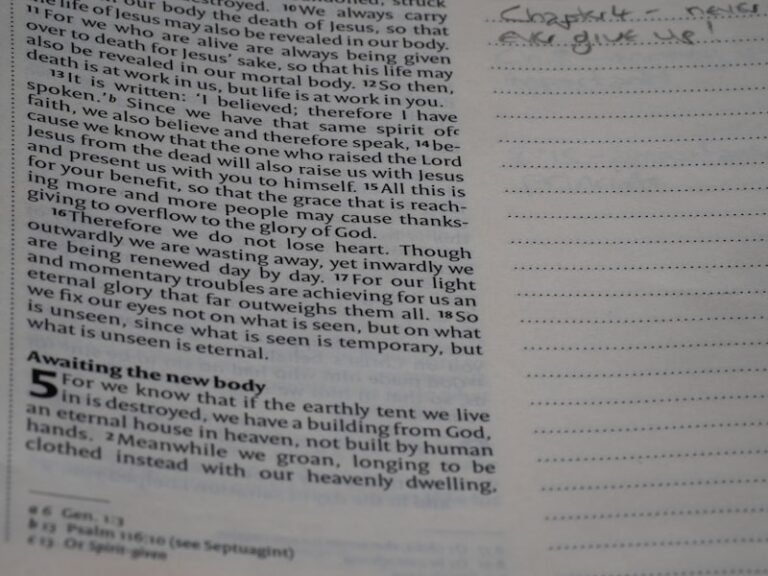 destroyed. 10 We always carry
our body the death of Jesus, so that
the life of Jesus may also be revealed in our body.
11 For we who are alive are always being given
over to death for Jesus' sake, so that his life may
also be revealed in our mortal body. 12 So then,
death is at work in us, but life is at work in you.
13 It is written: 'I believed; therefore I have
spoken.'b Since we have that same spirit ofc
faith, we also believe and therefore speak, 14 be-
cause we know that the one who raised the Lord
Jesus from the dead will also raise us with Jesus
and present us with you to himself. 15 All this is
for your benefit, so that the grace that is reach-
ing more and more people may cause thanks-
giving to overflow to the glory of God.
16 Therefore we do not lose heart. Though
outwardly we are wasting away, yet inwardly we
are being renewed day by day. 17 For our light
and momentary troubles are achieving for us an
eternal glory that far outweighs them all. 18 So
we fix our eyes not on what is seen, but on what
is unseen, since what is seen is temporary, but
what is unseen is eternal.
Awaiting the new body
5 For we know that if the earthly tent we live
in is destroyed, we have a building from God,
an eternal house in heaven, not built by human
hands. 2 Meanwhile we groan, longing to be
clothed instead with our heavenly dwelling,
a 6 Gen. 1:3
b 13 Psalm 116:10 (see Septuagint)
c 13 Or Spirit-given
Chapter 4 - never
ever give up!